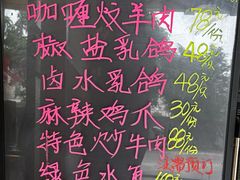 咖喱炆羊肉 78元/份
椒盐乳鸽 48元/份
卤水乳鸽 48元/份
麻辣鸡爪 30元/份
特色炒牛肉 88元/份
绿色水鱼